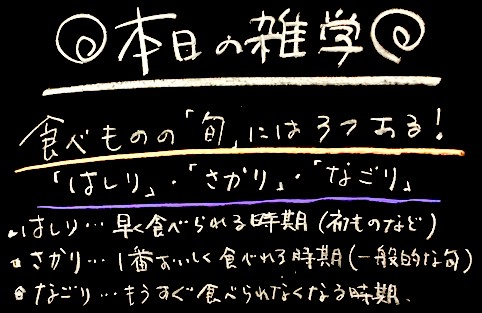 本日の雑学
食べものの「旬」には3つある!
「はしり」・「さかり」・「なごり」
・はしり…早く食べられる時期(初ものなど)
・さかり…1番おいしく食べれる時期(一般的な旬)
・なごり…もうすぐ食べられなくなる時期.